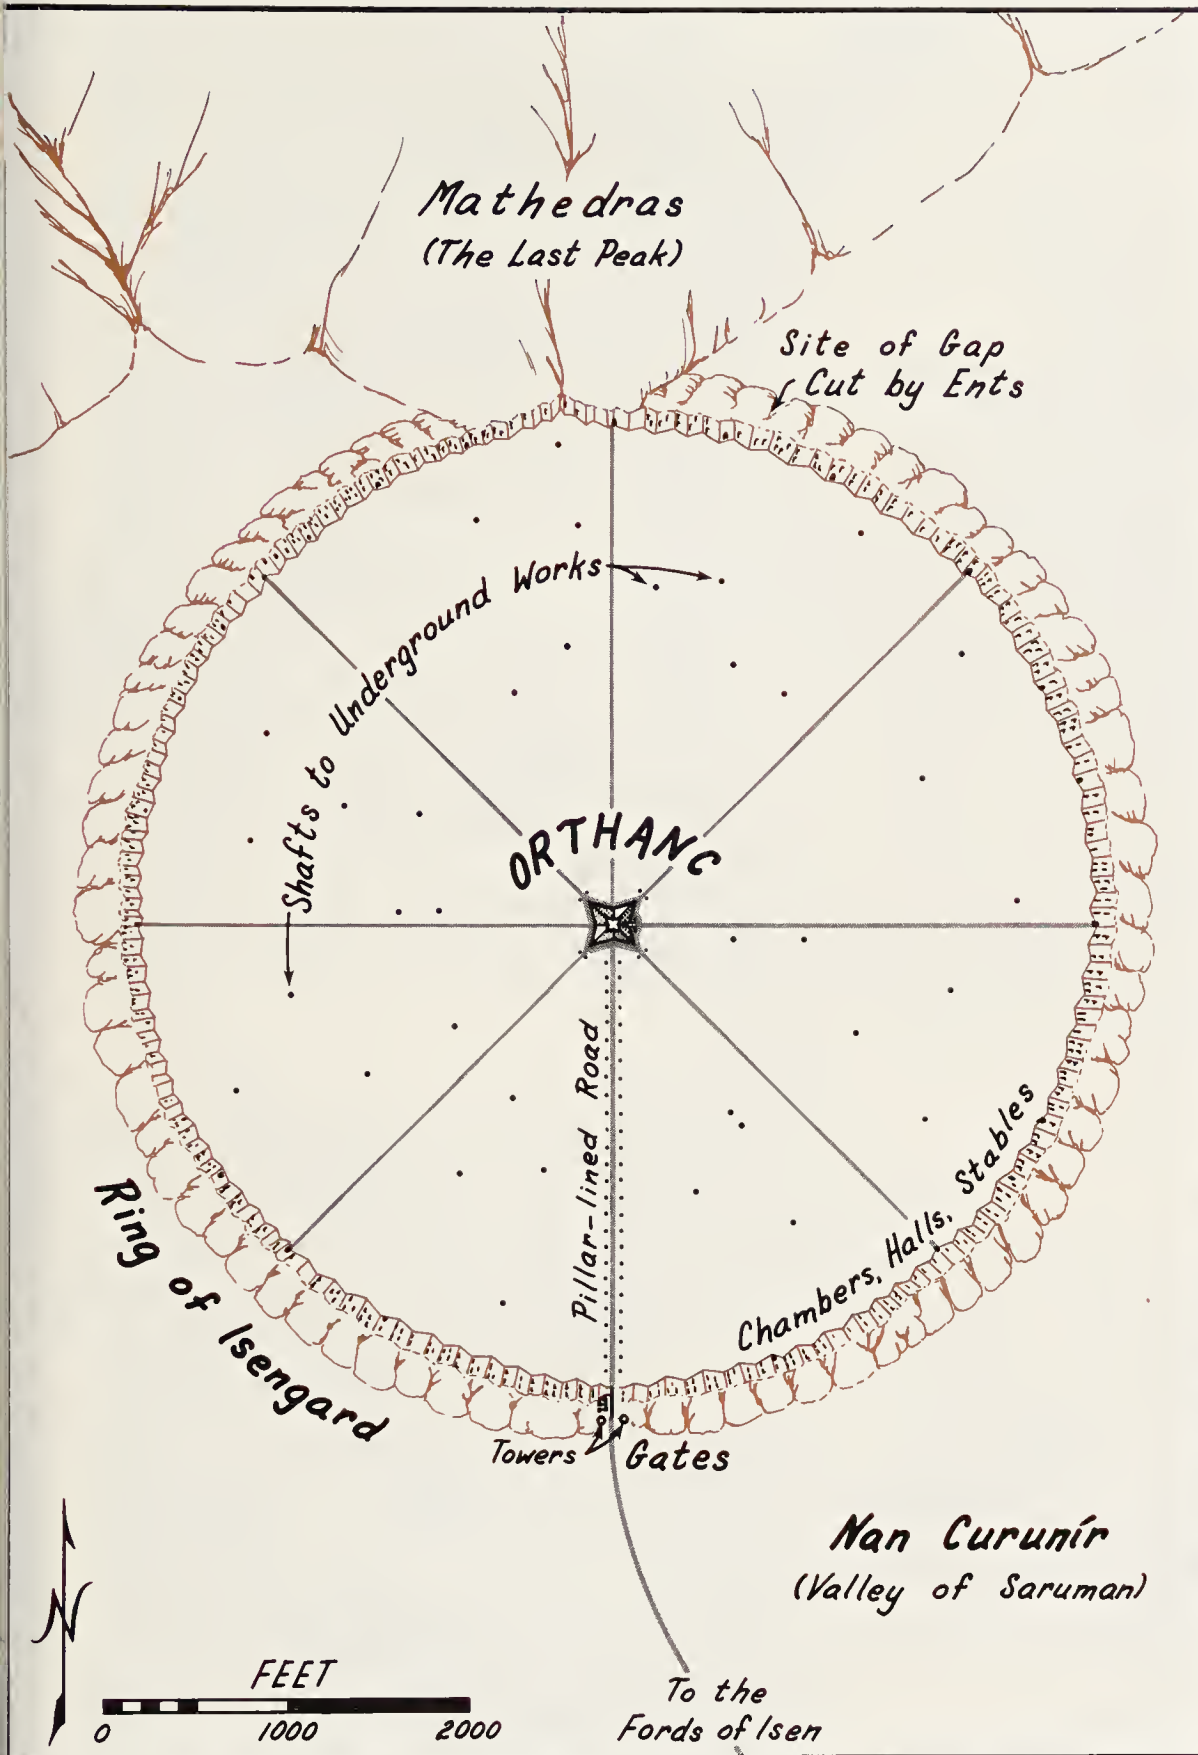 Mathedras
(The Last Peak)
Site of Gap
Cut by Ents
Shafts to Underground Works
ORTHANC
Pillar-lined Road
Chambers, Halls, Stables
Ring of Isengard
Towers
Gates
Nan Curunír
(Valley of Saruman)
N
FEET
0 1000 2000
To the
Fords of Isen